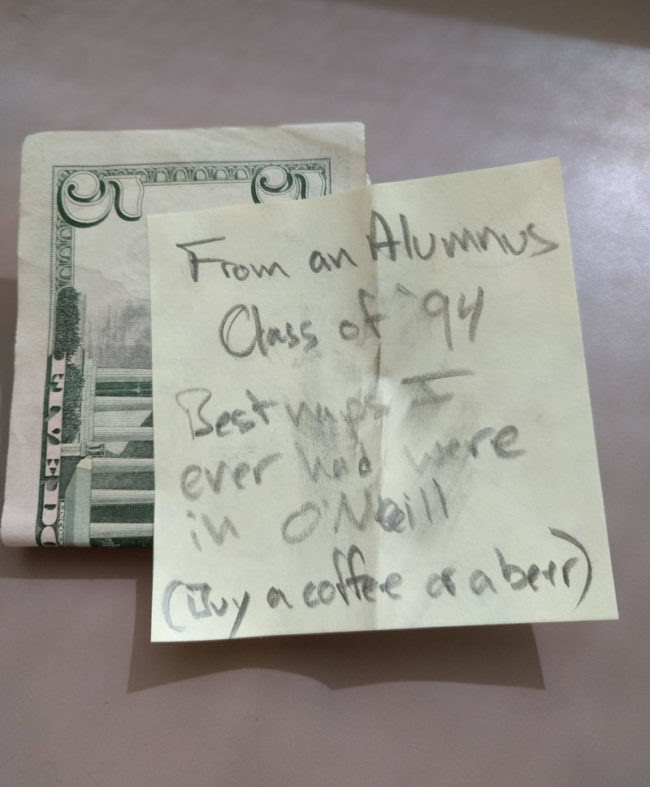 5 5
From an Alumnus
Class of '94
Best naps I
ever had were
in O'Neill
(Buy a coffee or a beer)